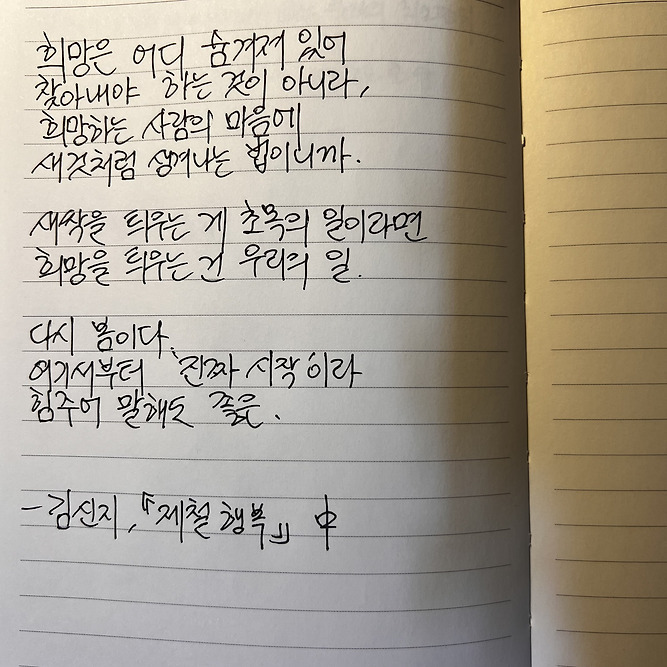 희망은 어디 숨겨져 있어
찾아내야 하는 것이 아니라,
희망하는 사람의 마음에
새것처럼 생겨나는 법이니까.
새싹을 틔우는 게 초목의 일이라면
희망을 틔우는 건 우리의 일.
다시 봄이다.
여기서부터 '진짜 시작'이라
힘주어 말해도 좋을.
- 김신지, 『제철 행복』 中